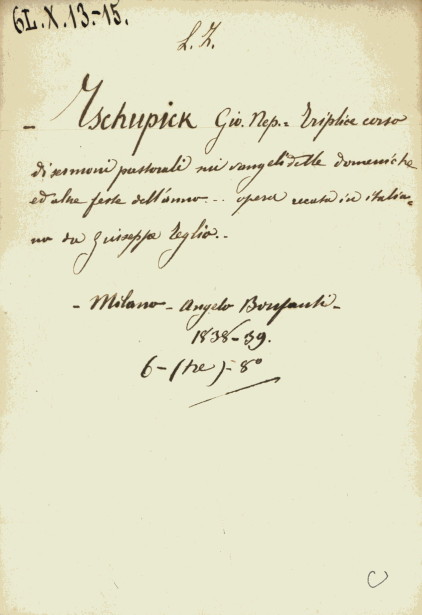 6L.X.13.-15.
L. Z.
- Tschupick Gio. Nep. = Triplice corso
di sermoni pastorali sui vangeli delle domeniche
ed altre feste dell'anno... opera recata in italia=
no da Giuseppe Teglio..
- Milano - Angelo Bonfanti -
1838-39.
6 - (tre) - 8°
C